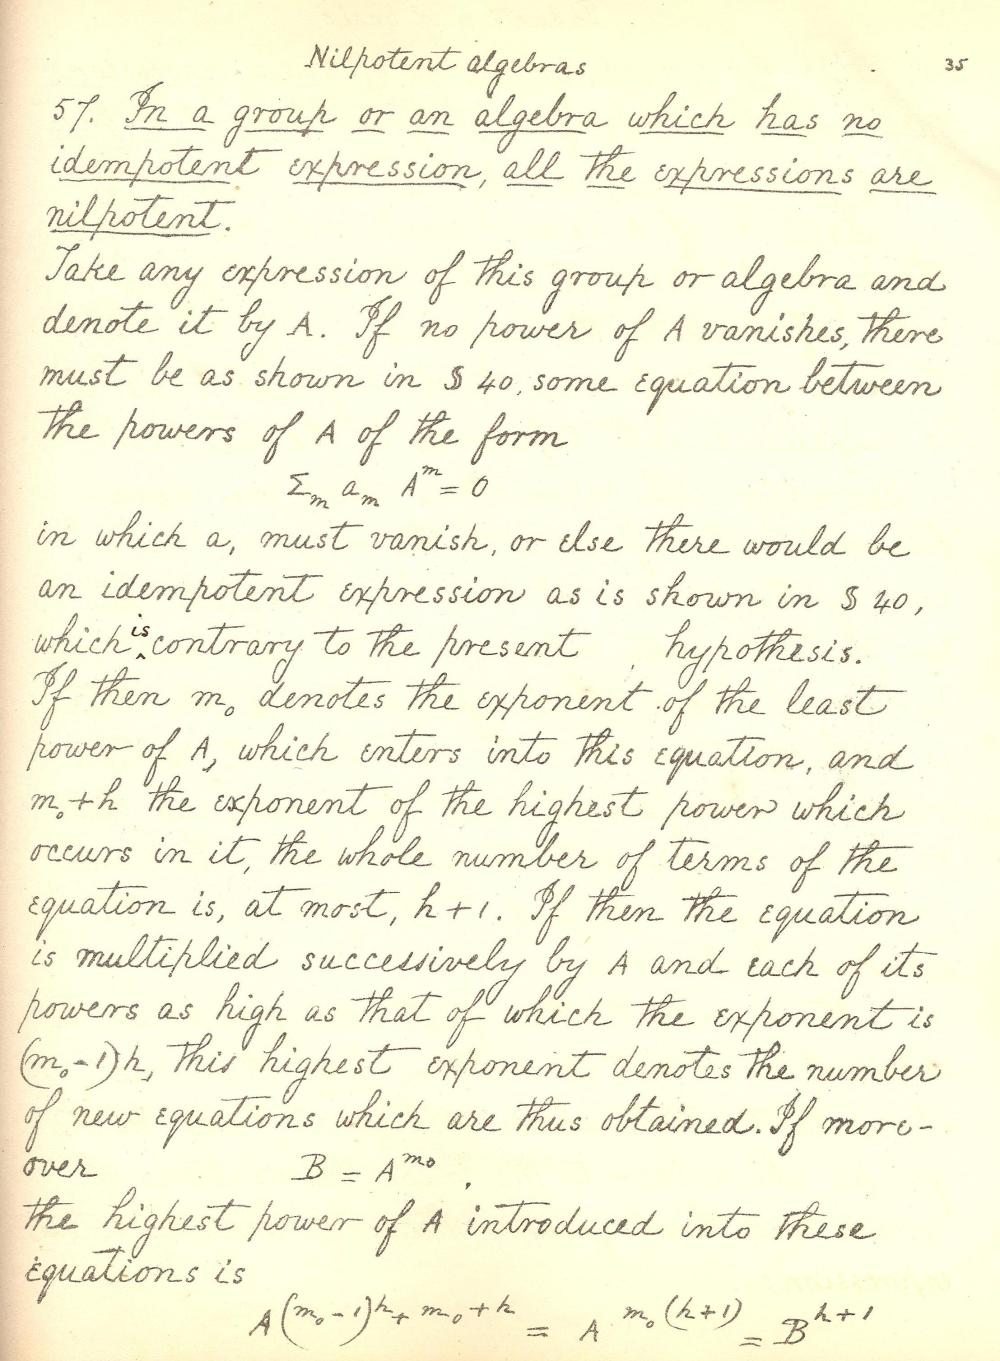 Nilpotent algebras 35
57. In a group or an algebra which has no
idempotent expression, all the expressions are
nilpotent.
Take any expression of this group or algebra and
denote it by A. If no power of A vanishes, there
must be as shown in § 40, some equation between
the powers of A of the form
Σₘ aₘ Aᵐ = 0
in which a, must vanish, or else there would be
an idempotent expression as is shown in § 40,
which is contrary to the present hypothesis.
If then m₀ denotes the exponent of the least
power of A, which enters into this equation, and
m₀+h the exponent of the highest power which
occurs in it, the whole number of terms of the
equation is, at most, h+1. If then the equation
is multiplied successively by A and each of its
powers as high as that of which the exponent is
(m₀-1)h, this highest exponent denotes the number
of new equations which are thus obtained. If more-
over B = A^m₀.
the highest power of A introduced into these
equations is
A^(m₀-1)h+m₀+h = A^m₀(h+1) = B^h+1